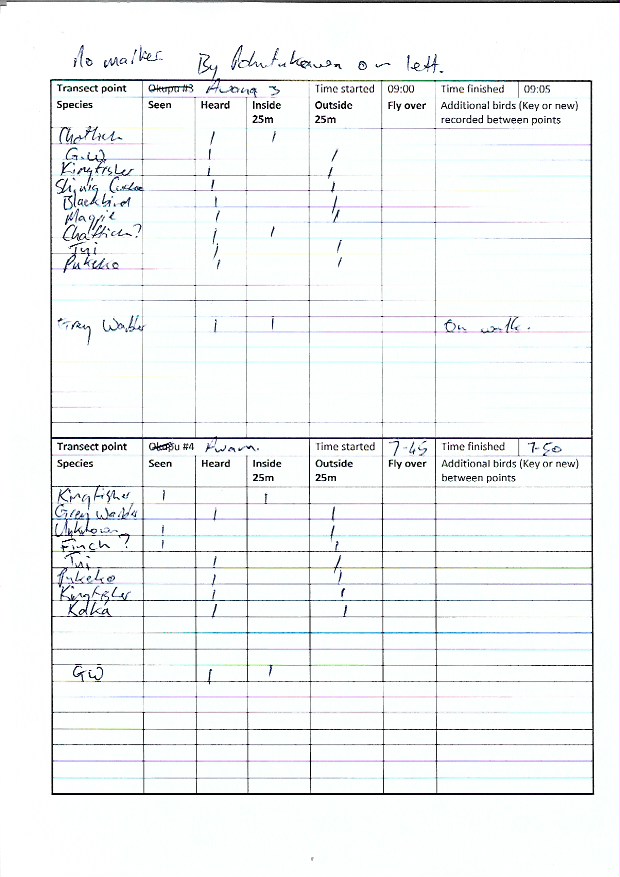 No marker. By Pohutukawa on left.
Transect point Okupu #3 Awana 3 Time started 09:00 Time finished 09:05
Species Seen Heard Inside 25m Outside 25m Fly over Additional birds (Key or new) recorded between points
Chaffinch | |
G.W | |
Kingfisher | |
Shining Cuckoo | |
Blackbird | |
Magpie | |
Chaffinch? | |
Tui | |
Pukeko | |
Grey Warbler | | On walk.
Transect point Okupu #4 Awana Time started 7-45 Time finished 7-50
Species Seen Heard Inside 25m Outside 25m Fly over Additional birds (Key or new) between points
Kingfisher | |
Grey Warbler | |
Unknown | |
Finch ? | |
Tui | |
Pukeko | |
Kingfisher | |
Kaka | |
GW | |